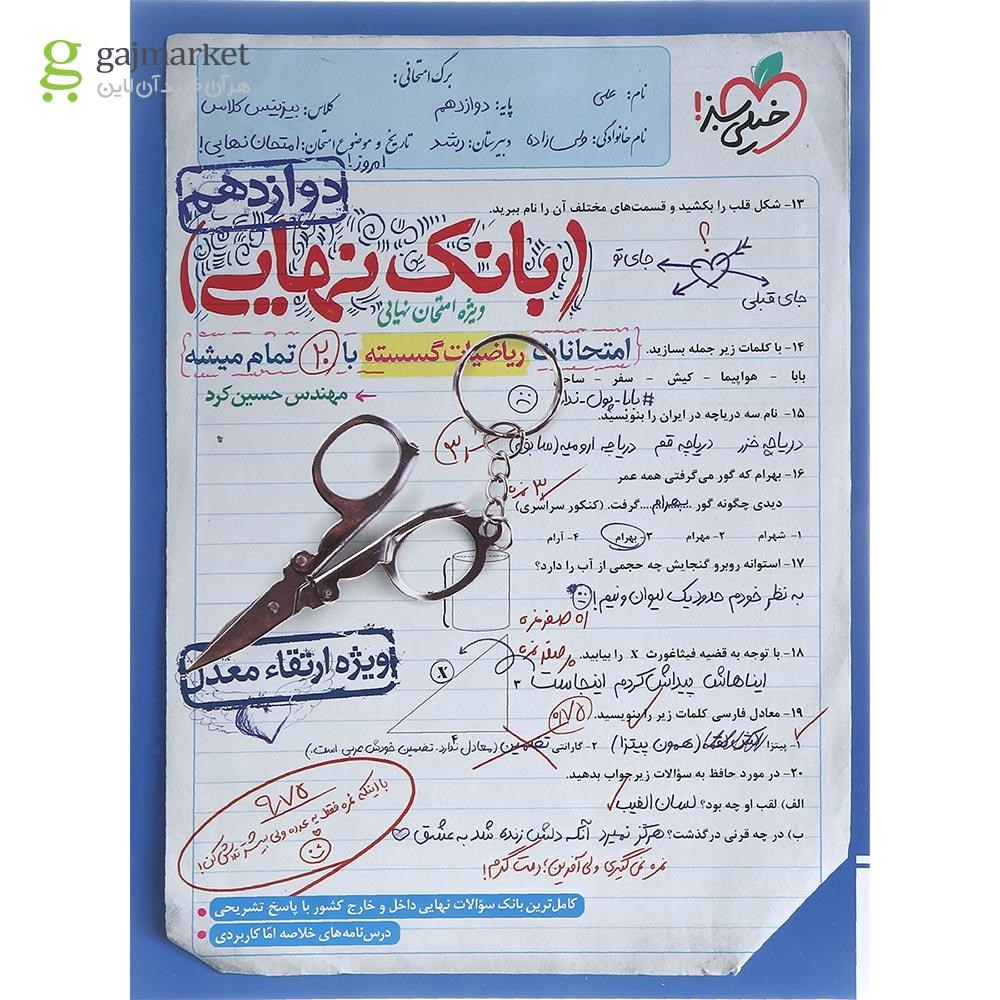 gajmarket
هر آن خرید آنلاین
خیلی سبز!
برگ امتحانی:
نام: علی
پایه: دوازدهم
کلاس: بیزینس کلاس
نام خانوادگی: ولی زاده
دبیرستان: رشد
تاریخ و موضوع امتحان: امتحان نهایی!
امروز!
دوازدهم
(بانک نهایی)
ویژه امتحان نهایی
امتحانات ریاضیات گسسته با ۲۰ تمام میشه
مهندس حسین کرد
۱۳- شکل قلب را بکشید و قسمت‌های مختلف آن را نام ببرید.
؟
جای تو
جای قبلی
۱۴- با کلمات زیر جمله بسازید.
بابا - هواپیما - کیش - سفر - ساحل
#بابا-پول-ندا
۱۵- نام سه دریاچه در ایران را بنویسید.
دریاچه خزر دریاچه قم دریاچه ارومیه (سابق)
۱۶- بهرام که گور می‌گرفتی همه عمر
دیدی چگونه گور ..بهرام.. گرفت. (کنکور سراسری)
۳ نمره
۱- شهرام ۲- مهرام ۳- بهرام ۴- آرام
۱۷- استوانه روبرو گنجایش چه حجمی از آب را دارد؟
به نظر خودم حدود یک لیوان و نیم!
صفر نمره
۱۸- با توجه به قضیه فیثاغورث X را بیابید.
ایناهاش پیداش کردم اینجاست
X
۳
۴
ویژه ارتقاء معدل
۱۹- معادل فارسی کلمات زیر را بنویسید.
۰/۷۵
۱- پیتزا (همون پیتزا) ۲- گارانتی تضمین (معادل ندارد. تضمین خودش عربی است.)
۲۰- در مورد حافظ به سؤالات زیر جواب بدهید.
الف) لقب او چه بود؟ لسان الغیب
ب) در چه قرنی درگذشت؟ هرگز نمیرد آنکه دلش زنده شد به عشق
نمره نمی‌گیری ولی آفرین؛ دمت گرم!
۹/۷۵
با اینکه نمره فقط یه عدده ولی بیشتر تلاش کن!
کامل‌ترین بانک سؤالات نهایی داخل و خارج کشور با پاسخ تشریحی
درس‌نامه‌های خلاصه امّا کاربردی